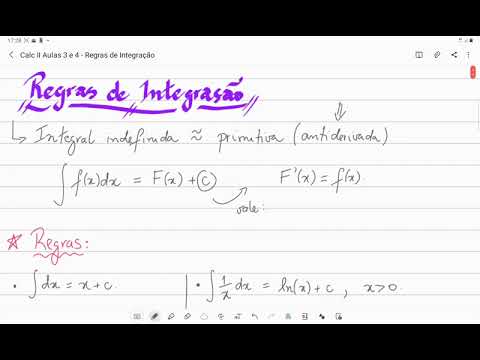 17:28
Calc II Aulas 3 e 4 - Regras de Integração
Regras de Integração
↳ Integral indefinida ≈ primitiva (antiderivada)
∫ f(x)dx = F(x) + C vale: F'(x) = f(x)
* Regras:
• ∫ dx = x + c. | • ∫ 1/x dx = ln(x) + c, x>0.